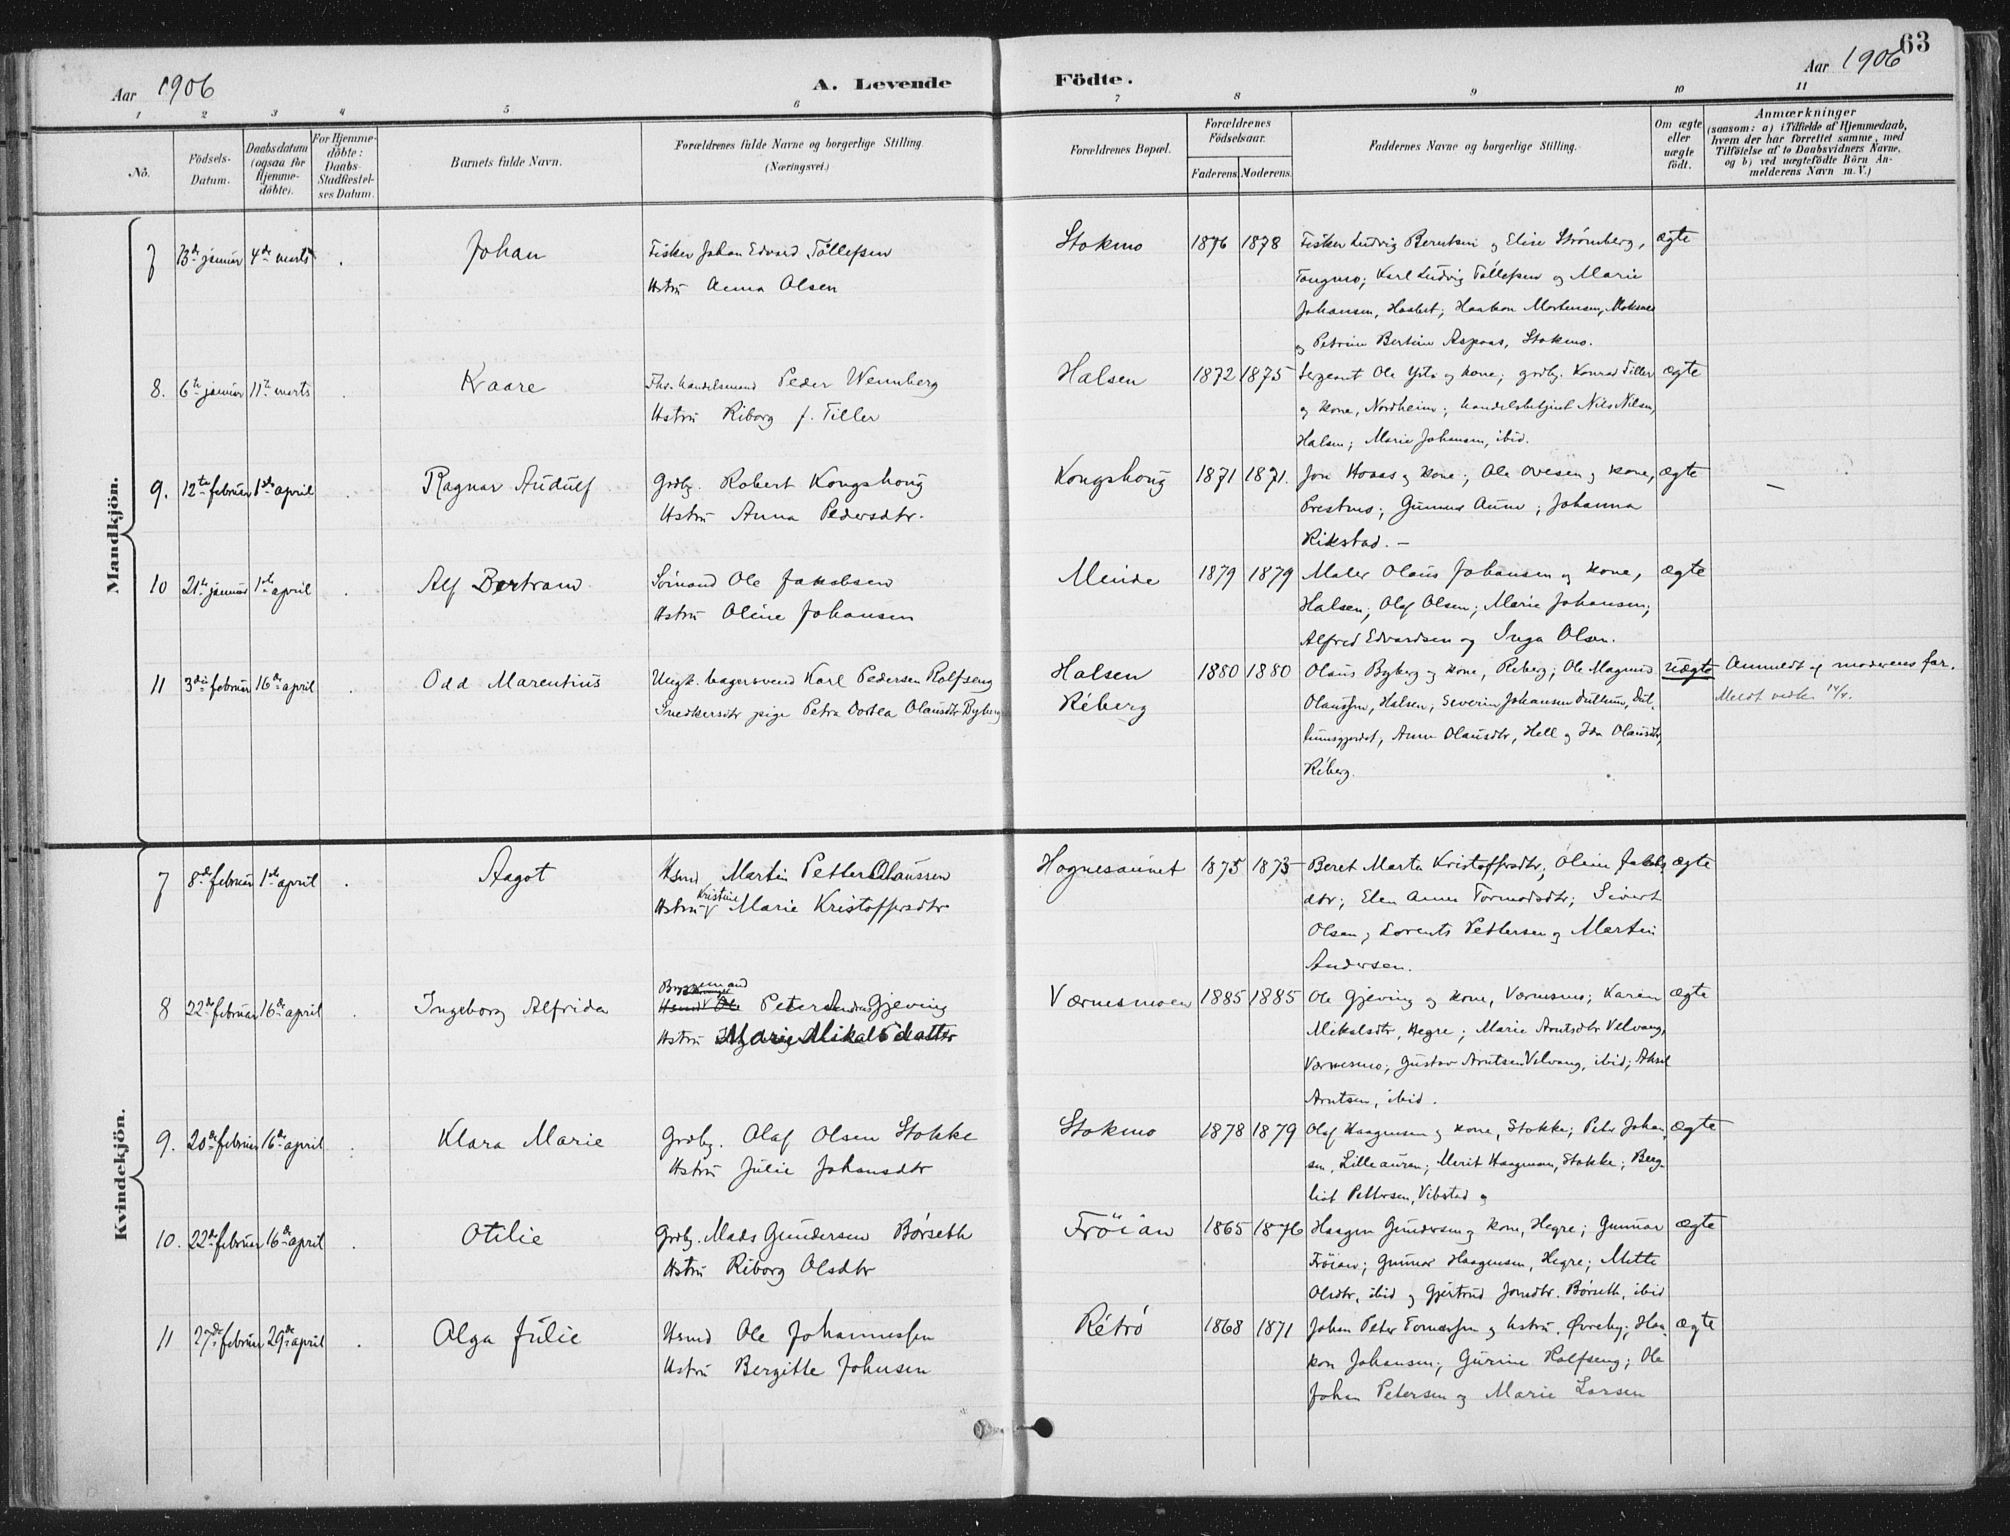 63
Aar 1906
A. Levende
Födte.
Aar 1906
1 2 3 4 5 6 7 8 9 10 11
No.
Födsels-
Datum.
Daabsdatum
(ogsaa for
Hjemme-
döbte).
For Hjemme-
döbte:
Daabs-
Stadfæstel-
ses Datum.
Barnets fulde Navn.
Forældrenes fulde Navne og borgerlige Stilling.
(Næringsvei.)
Forældrenes Bopæl.
Forældrenes
Födselsaar.
Faderens Moderens.
Faddernes Navne og borgerlige Stilling.
Om ægte
eller
uægte
födt.
Anmærkninger
(saasom: a) i Tilfælde af Hjemmedaab,
hvem der har forrettet samme, med
Tilföielse af to Daabsvidners Navne,
og b) ved uægtefödte Börn An-
melderens Navn m. V.)
Mandkjön.
7 13de januar 4de marts Johan Fisker Johan Edvard Tollefsen Stokmo 1876 1878 Fisker Ludvig Berntsen og Elise Strømberg, ægte
Hstru Anna Olsen Tangmo; Karl Ludvig Tollefsen og Marie
Johansen, Haabet; Haakon Mortensen, Moksnes
og Petrine Bertine Aspaas, Stokmo.
8. 6te januar 11te marts Kaare Fhv. handelsmand Peder Wennberg Halsen 1872 1875 Sergeant Ole og kone; grdbr. Konrad Tiller ægte
Hstru Riborg f. Tiller og kone, Nordheim; handelsbetjent Nils Nilsen,
Halsen; Marie Johansen, ibid.
9. 12te februar 1ste april Ragnar Audulf Grdbr. Robert Kongshoug Kongshoug 1871 1871. Jon Hoaas og kone; Ole Ovesen og kone, ægte
Hstru Anna Pedersdtr. Prestmo; Gunnar Aune; Johanna
Rikstad. —
10 21de januar 1ste april Alf Bertram Sømand Ole Jakobsen Minde 1879 1879 Maler Olaus Johansen og kone, ægte
Hstru Oline Johansen Halsen; Olaf Olsen; Marie Johansen;
Alfred Edvardsen og Inga Olsen.
11 3die februar 16de april Odd Marentius Ungk. bagersvend Karl Pedersen Rolfseng Halsen 1880 1880 Olaus Byberg og kone, Reberg; Ole Magnus uægte Anmeldt af moderens far.
Snedkersdtr pige Petra Dortea Olausdtr Byberg Réberg Olaussen, Halsen; Severin Johansen Dullum, Dul- Meldt vedk. 14/4.
lumsgjerdet, Anne Olausdtr, Hell og Ida Olausdtr,
Réberg.
Kvindekjön.
7 8de februar 1ste april Aagot Hsmd Martin Petter Olaussen Hognesaunet 1875 1873 Beret Marta Kristoffersdtr; Oline Jakobs- ægte
Hstru Kristine Marie Kristoffersdtr dtr; Elen Anna Tormodsdtr; Sivert
Olsen; Lorents Pettersen og Martin
Andersen.
8 22de februar 16de april Ingeborg Alfrida Peter Gjeving Værnesmoen 1885 1885 Ole Gjeving og kone, Værnesmo; Karen ægte
Hstru Marie Mikalsdatter Mikalsdtr, Hegre; Marie Arntsdtr Velvang,
Værnesmo; Gustav Arntsen Velvang, ibid; Aksel
Arntsen, ibid.
9. 20de februar 16de april Klara Marie Grdbr. Olaf Olsen Stokke Stokmo 1878 1879 Olaf Haagensen og kone, Stokke; Peter Johan- ægte
Hstru Julie Johansdtr sen, Lilleauran; Merit Haagensen, Stokke; Berg-
liot Pettersen, Vibstad og
10. 22de februar 16de april Otilie Grdbr. Mads Gundersen Børseth Frøian 1865 1876 Haagen Gundersen og kone, Hegre; Gunnar ægte
Hstru Riborg Olsdtr Frøian; Gunnar Haagensen, Hegre; Mette
Olsdtr, ibid og Gjertrud Jonsdtr. Børseth, ibid
11 27de februar 29de april Olga Julie Hsmd Ole Johannessen Rétrø 1868 1871 Johan Peter Tomassen og hstru, Øvreby; Haa- ægte
Hstru Bergitte Johnsen kon Johansen; Gurine Rolfseng; Ole
Johan Petersen og Marie Larsen